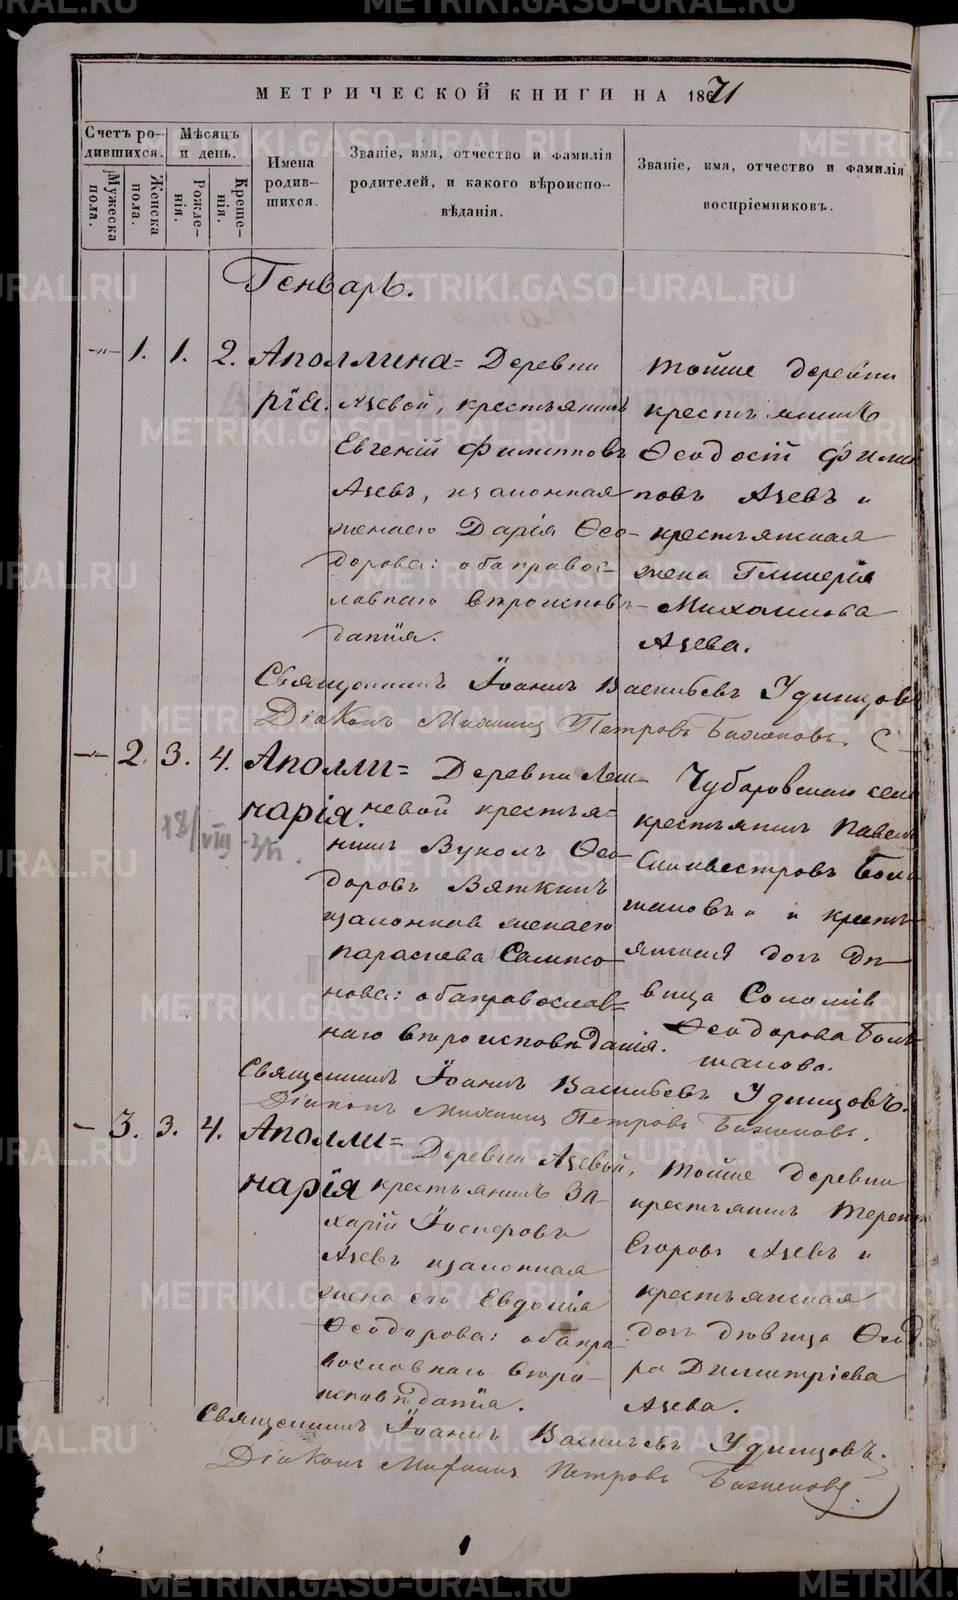 МЕТРИЧЕСКОЙ КНИГИ НА 1871
Счетъ ро-
дившихся.
Мѣсяцъ
и день.
Мужеска
пола.
Женска
пола.
Рожде-
нія.
Креще-
нія.
Имена
родив-
шихся.
Званіе, имя, отчество и фамилія
родителей, и какого вѣроиспо-
вѣданія.
Званіе, имя, отчество и фамилія
воспріемниковъ.
Генварь.
-"- 1. 1. 2. Аполлина=
рія.
Деревни
Азевой, крестьянинъ
Евгеній Филипповъ
Азевъ, и законная
жена его Дарія Ѳео-
дорова: оба правос-
лавнаго вѣроисповѣ-
данія.
Тойже деревни
крестьянинъ
Ѳеодосій Филип
повъ Азевъ и
крестьянская
жена Гликерія
Михаилова
Азева.
Священникъ Іоаннъ Васильевъ Удинцовъ
Діаконъ Михаилъ Петровъ Баженовъ.
-"- 2. 3. 4. Аполли=
нарія.
Деревни Лом-
невой крестья=
нинъ Вуколъ Ѳео-
доровъ Вяткинъ
и законная жена его
Параскева Сампсо-
нова: оба православ-
наго вѣроисповѣданія.
Чубаровскаго села
крестьянинъ Павелъ
Силивестровъ Боль
шаковъ и крестъ-
янская дочь дѣ-
вица Соломія
Ѳеодорова Боль
шакова.
Священникъ Іоаннъ Васильевъ Удинцовъ.
Діаконъ Михаилъ Петровъ Баженовъ.
- 3. 3. 4. Аполли=
нарія
Деревни Азевой,
крестьянинъ За-
харій Іосифовъ
Азевъ и законная
жена его Евдокія
Ѳеодорова: оба пра
вославнаго вѣро-
исповѣданія.
Тойже деревни
крестьянинъ Терентій
Егоровъ Азевъ и
крестьянская
дочь дѣвица Ѳеод
ра Димитріева
Азева.
Священникъ Іоаннъ Васильевъ Удинцовъ.
Діаконъ Михаилъ Петровъ Баженовъ.
METRIKI.GASO-URAL.RU